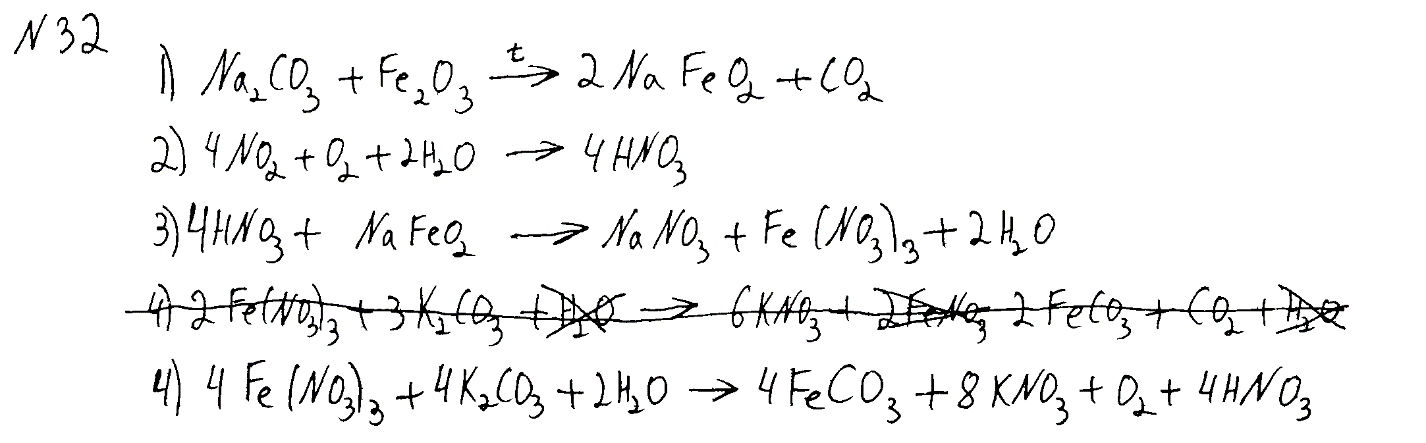 N 32
1) Na₂CO₃ + Fe₂O₃ —t→ 2 Na FeO₂ + CO₂
2) 4 NO₂ + O₂ + 2H₂O → 4 HNO₃
3) 4HNO₃ + NaFeO₂ → NaNO₃ + Fe(NO₃)₃ + 2H₂O
4) 2 Fe(NO₃)₃ + 3 K₂CO₃ + H₂O → 6KNO₃ + 2FeNO₃ 2 FeCO₃ + CO₂ + H₂O
4) 4 Fe(NO₃)₃ + 4K₂CO₃ + 2H₂O → 4 FeCO₃ + 8 KNO₃ + O₂ + 4HNO₃